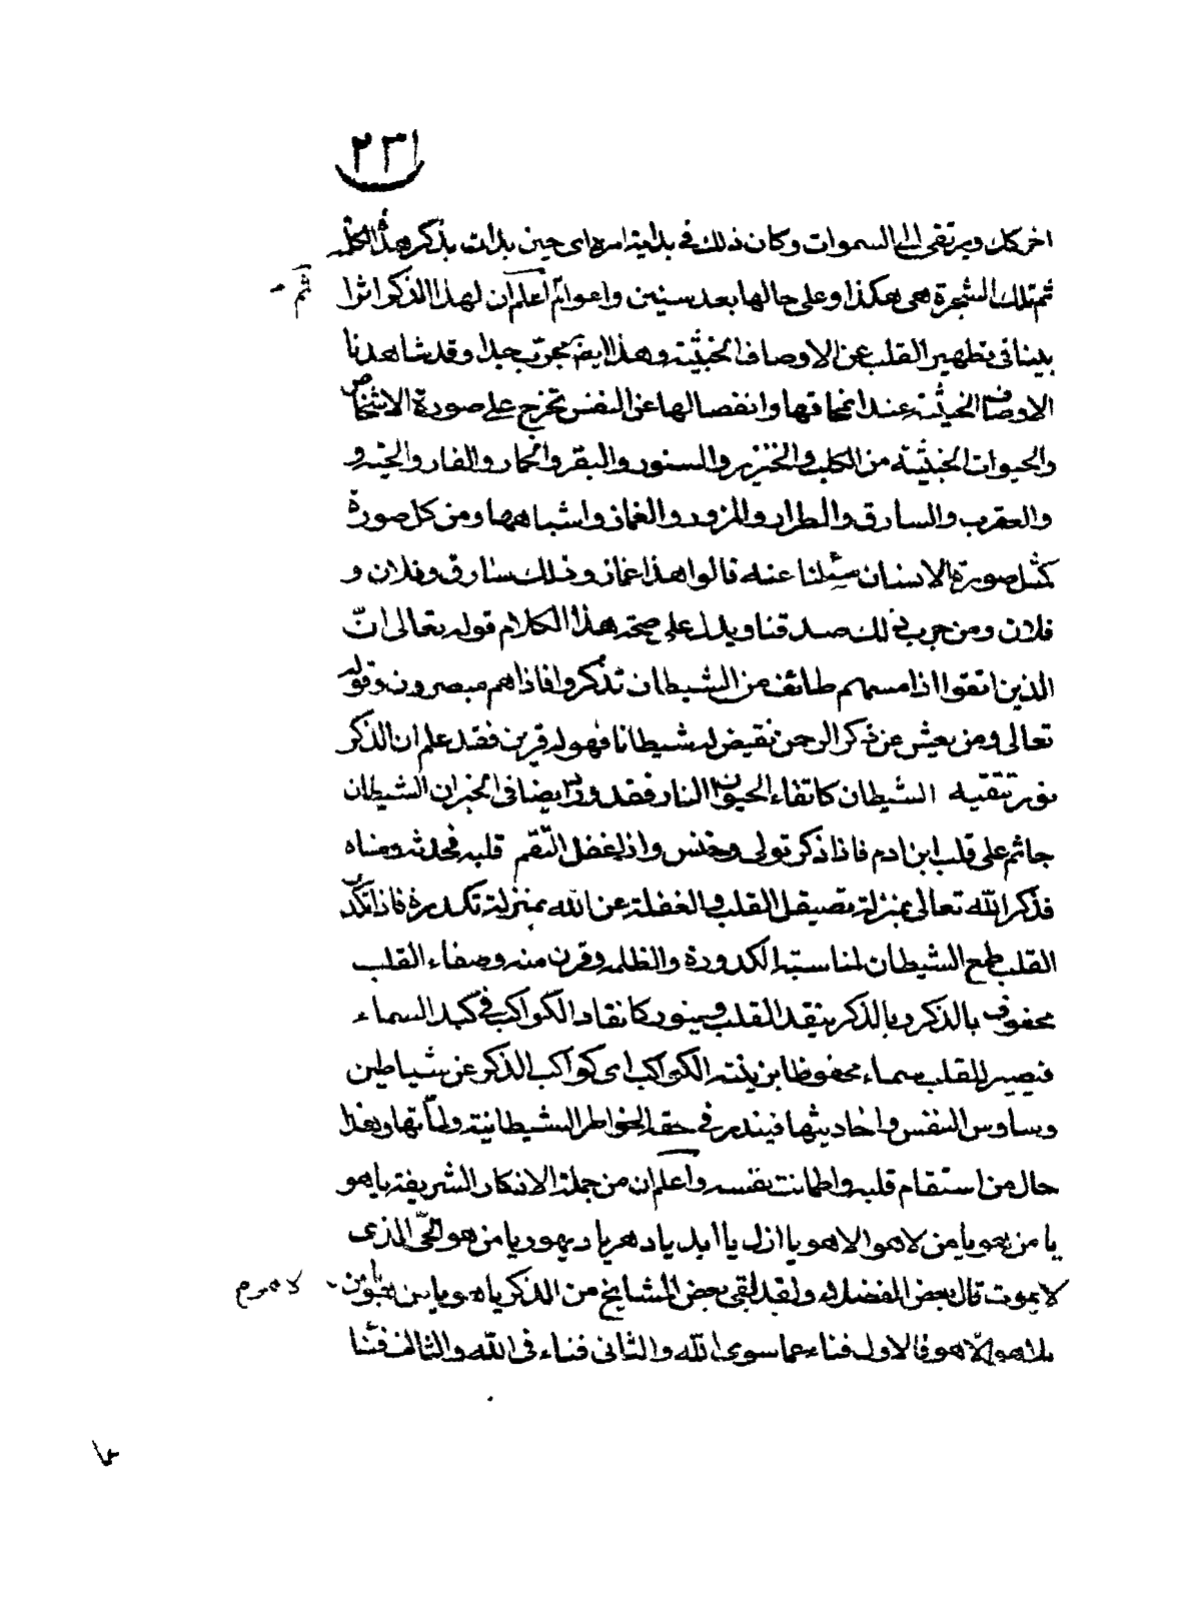 ٢٣١
اخر كان ويرتقى الى السموات وكان ذلك فى بداية امره اى حين بدات بذكر هذه الكلمة
ثم تلك الشجرة هى هكذا وعلى حالها بعد سنين واعوام اعلم ان لهذا الذكر اثرا
ثم
بينا فى تطهير القلب عن الاوصاف الخبيثة وهذا ايضا مجرب جدا وقد شاهدنا
الاوصاف الخبيثة عند انمحاقها وانفصالها عن النفس تخرج على صورة الاشخاص
والحيوات الخبيثة من الكلب والخنزير والسنور والبقر والحمار والفار والحية و
والعقرب والسارق والطرار والمزور والغماز واشباهها ومن كل صورة
كمثل صورة الانسان سئلنا عنه قالوا هذا غماز وذلك سارق وفلان و
فلان ومن جرب ذلك صدقنا ويدل على صحة هذا الكلام قوله تعالى انّ
الذين اتقوا اذا مسهم طائف من الشيطان تذكروا فاذا هم مبصرون وقوله
تعالى ومن يعش عن ذكر الرحمن نقيض له شيطانا فهو له قرين فقد علم ان الذكر
نور تتقيه الشيطان كاتقاء الحيوان النار فقد ورد ايضا فى الخبر ان الشيطان
جاثم على قلب ابن ادم فاذا ذكر تولى وخنس واذا غفل التقم قلبه فحدثه ومناه
فذكر الله تعالى بمنزلة تصيقل القلب والغفلة عن الله بمنزلة تكدره فاذا تكدر
القلب طمع الشيطان لمناسبة الكدورة والظلمه وقرن منه وصفاء القلب
محفوف بالذكر وبالذكر يتقد القلب وينور كاتقاد الكواكب فى كبد السماء
فيصير القلب سماء محفوظا بزينة الكواكب اى كواكب الذكر عن شياطين
وساوس النفس واحاديثها فيندر فى حقه الخواطر الشيطانية ولماتها وهذا
حال من استقام قلبه واطمانت نفسه واعلم ان من جملة الاذكار الشريفة ياهو
يا من هو يا من لا هو الا هو يا ازل يا ابد يا دهر يا ديهور يا من هو الحىّ الذى
لا يموت قال بعض الفضلاء ولقد لقى بعض المشايخ من الذكر يا هو يا من هو يا من
هو الّا هو فالاول فناء عما سوى الله والثانى فناء فى الله والثالث فنا